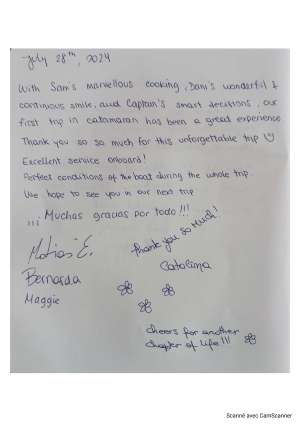 July 28th, 2024
With Sam's marvellous cooking, Dani's wonderful &
continious smile, and Captain's smart decitions, our
first trip in catamaran has been a great experience
Thank you so so much for this unforgettable trip
Excellent service onboard!
Perfect conditions of the boat during the whole trip.
We hope to see you in our next trip
¡¡¡ Muchas gracias por todo!!!
Matias E.
thank you so much!
Catalina
Bernarda
Maggie
cheers for another
chapter of life!!!
Scanné avec CamScanner